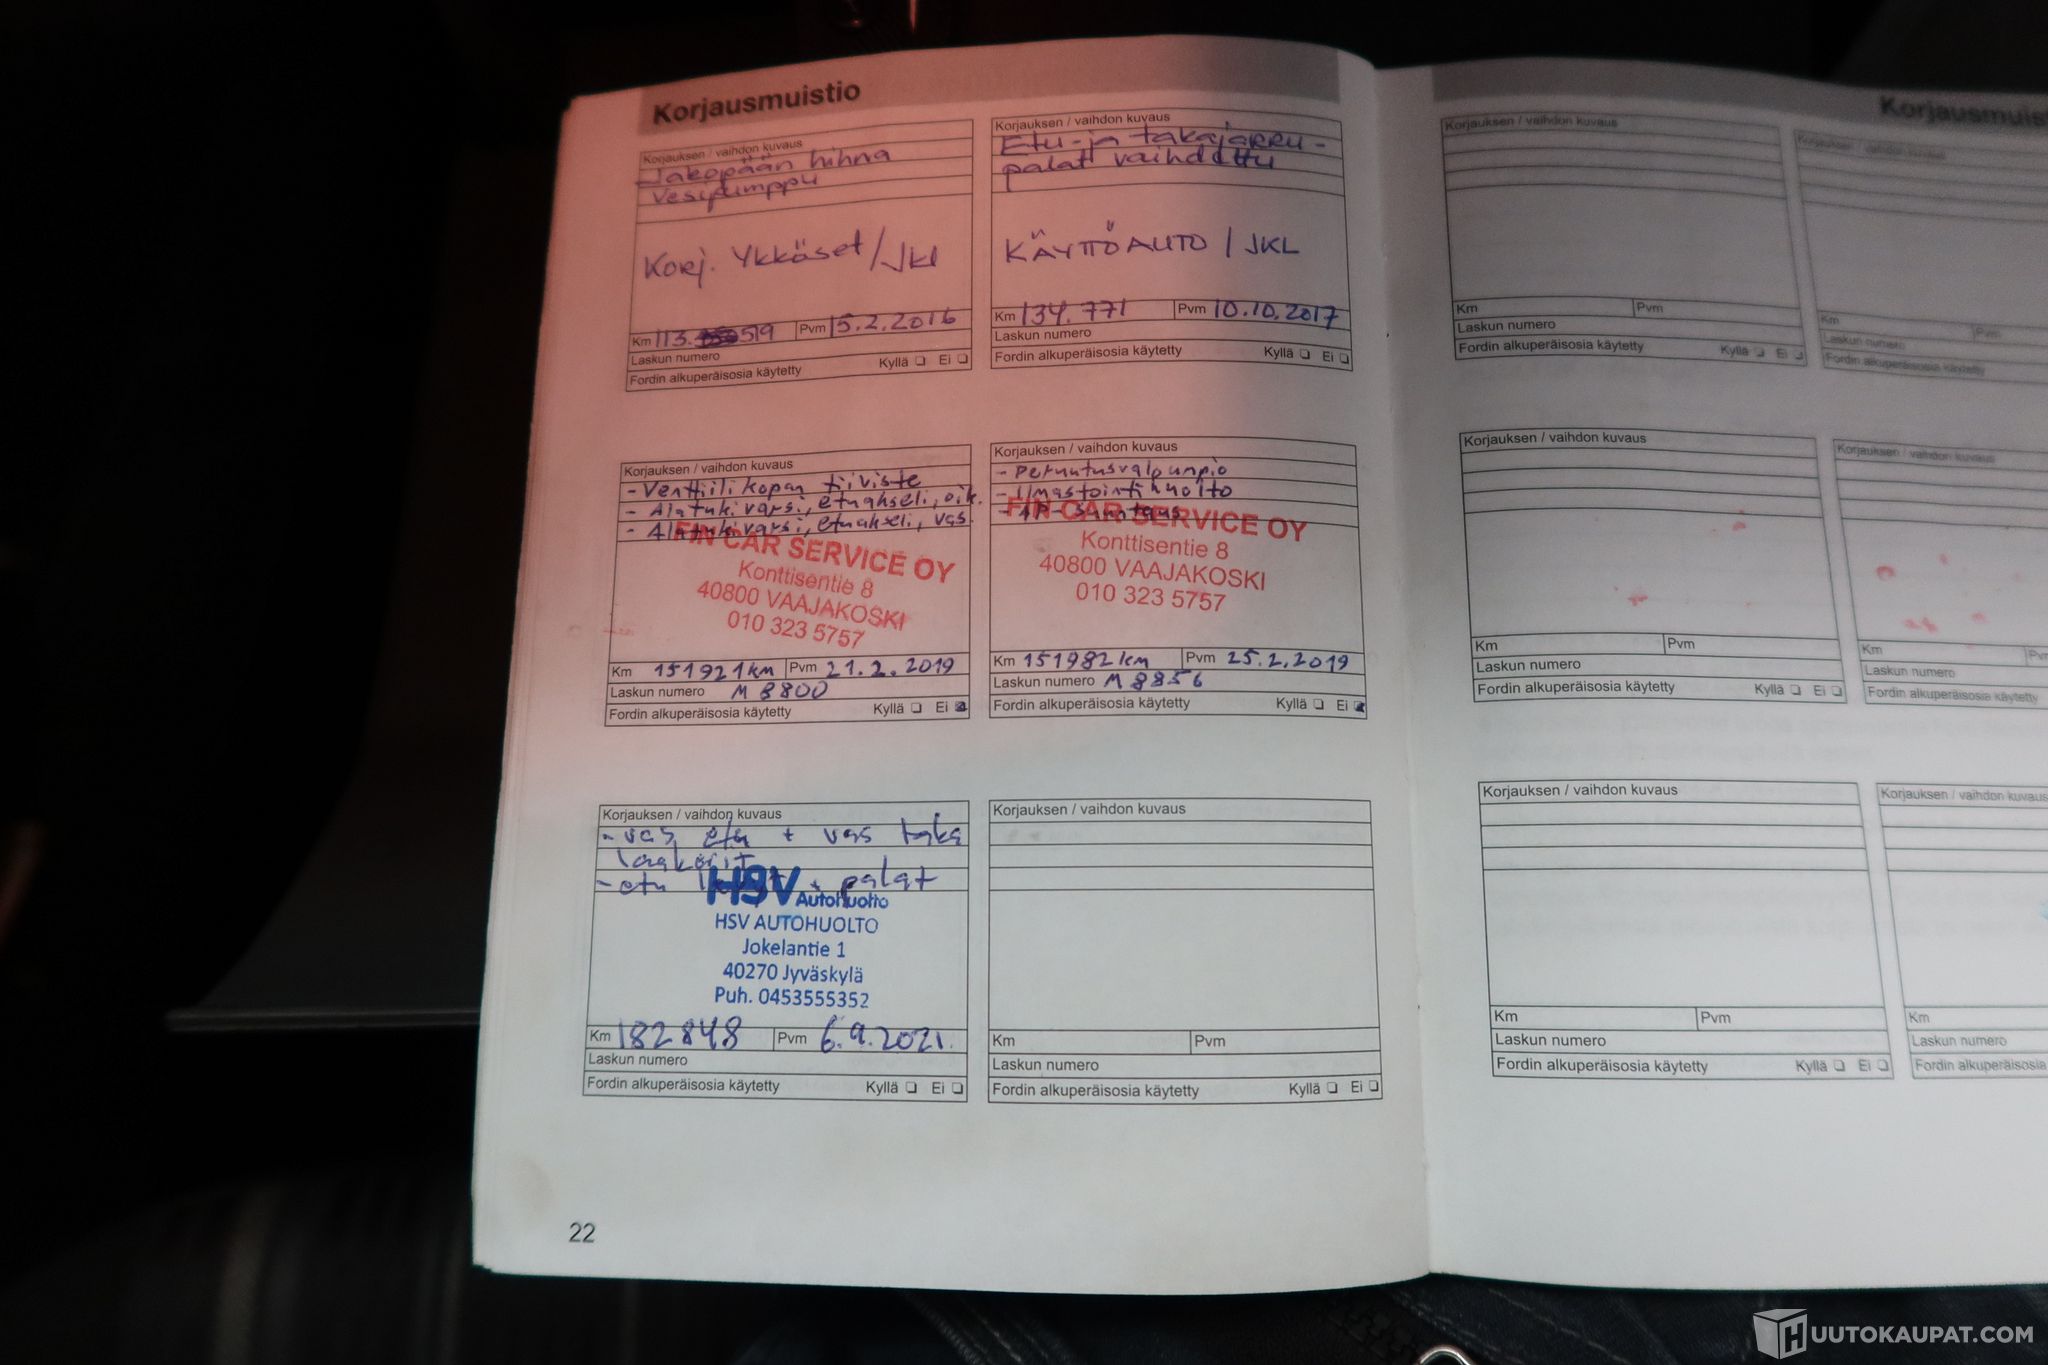 Korjausmuistio
Korjauksen / vaihdon kuvaus
Jakopään hihna
Vesipumppu
Korj. Ykköset / Jkl
Km 113. 519 Pvm 15.2.2016
Laskun numero
Fordin alkuperäisosia käytetty Kyllä ❏ Ei ❏
Korjauksen / vaihdon kuvaus
Etu- ja takajarru-
palat vaihdettu
KÄYTTÖAUTO / JKL
Km 134.771 Pvm 10.10.2017
Laskun numero
Fordin alkuperäisosia käytetty Kyllä ❏ Ei ❏
Korjauksen / vaihdon kuvaus
- Venttiilikopan tiiviste
- Alatukivarsi, etuakseli, oik.
- Alatukivarsi, etuakseli, vas.
FIN CAR SERVICE OY
Konttisentie 8
40800 VAAJAKOSKI
010 323 5757
Km 151921km Pvm 21.2.2019
Laskun numero M8800
Fordin alkuperäisosia käytetty Kyllä ❏ Ei
Korjauksen / vaihdon kuvaus
- Peruutusvalpumpio
- Ilmastointihuolto
- AP-suuntaus
FIN CAR SERVICE OY
Konttisentie 8
40800 VAAJAKOSKI
010 323 5757
Km 151982km Pvm 25.2.2019
Laskun numero M8856
Fordin alkuperäisosia käytetty Kyllä ❏ Ei
Korjauksen / vaihdon kuvaus
- vas etu + vas taka
laakerit
- etu + palat
HSV Autohuolto
HSV AUTOHUOLTO
Jokelantie 1
40270 Jyväskylä
Puh. 0453555352
Km 182848 Pvm 6.9.2021.
Laskun numero
Fordin alkuperäisosia käytetty Kyllä ❏ Ei ❏
Korjauksen / vaihdon kuvaus
Km Pvm
Laskun numero
Fordin alkuperäisosia käytetty Kyllä ❏ Ei ❏
22
Korjausmuis
Korjauksen / vaihdon kuvaus
Km Pvm
Laskun numero
Fordin alkuperäisosia käytetty Kyllä ❏ Ei ❏
Korjauksen / vaihdon kuvaus
Km Pvm
Laskun numero
Fordin alkuperäisosia käytetty
Korjauksen / vaihdon kuvaus
Km Pvm
Laskun numero
Fordin alkuperäisosia käytetty Kyllä ❏ Ei ❏
Korjauksen / vaihdon kuvaus
Km Pv
Laskun numero
Fordin alkuperäisosia käytetty
Korjauksen / vaihdon kuvaus
Km Pvm
Laskun numero
Fordin alkuperäisosia käytetty Kyllä ❏ Ei ❏
Korjauksen / vaihdon kuvaus
Km
Laskun numero
Fordin alkuperäisosia
HUUTOKAUPAT.COM